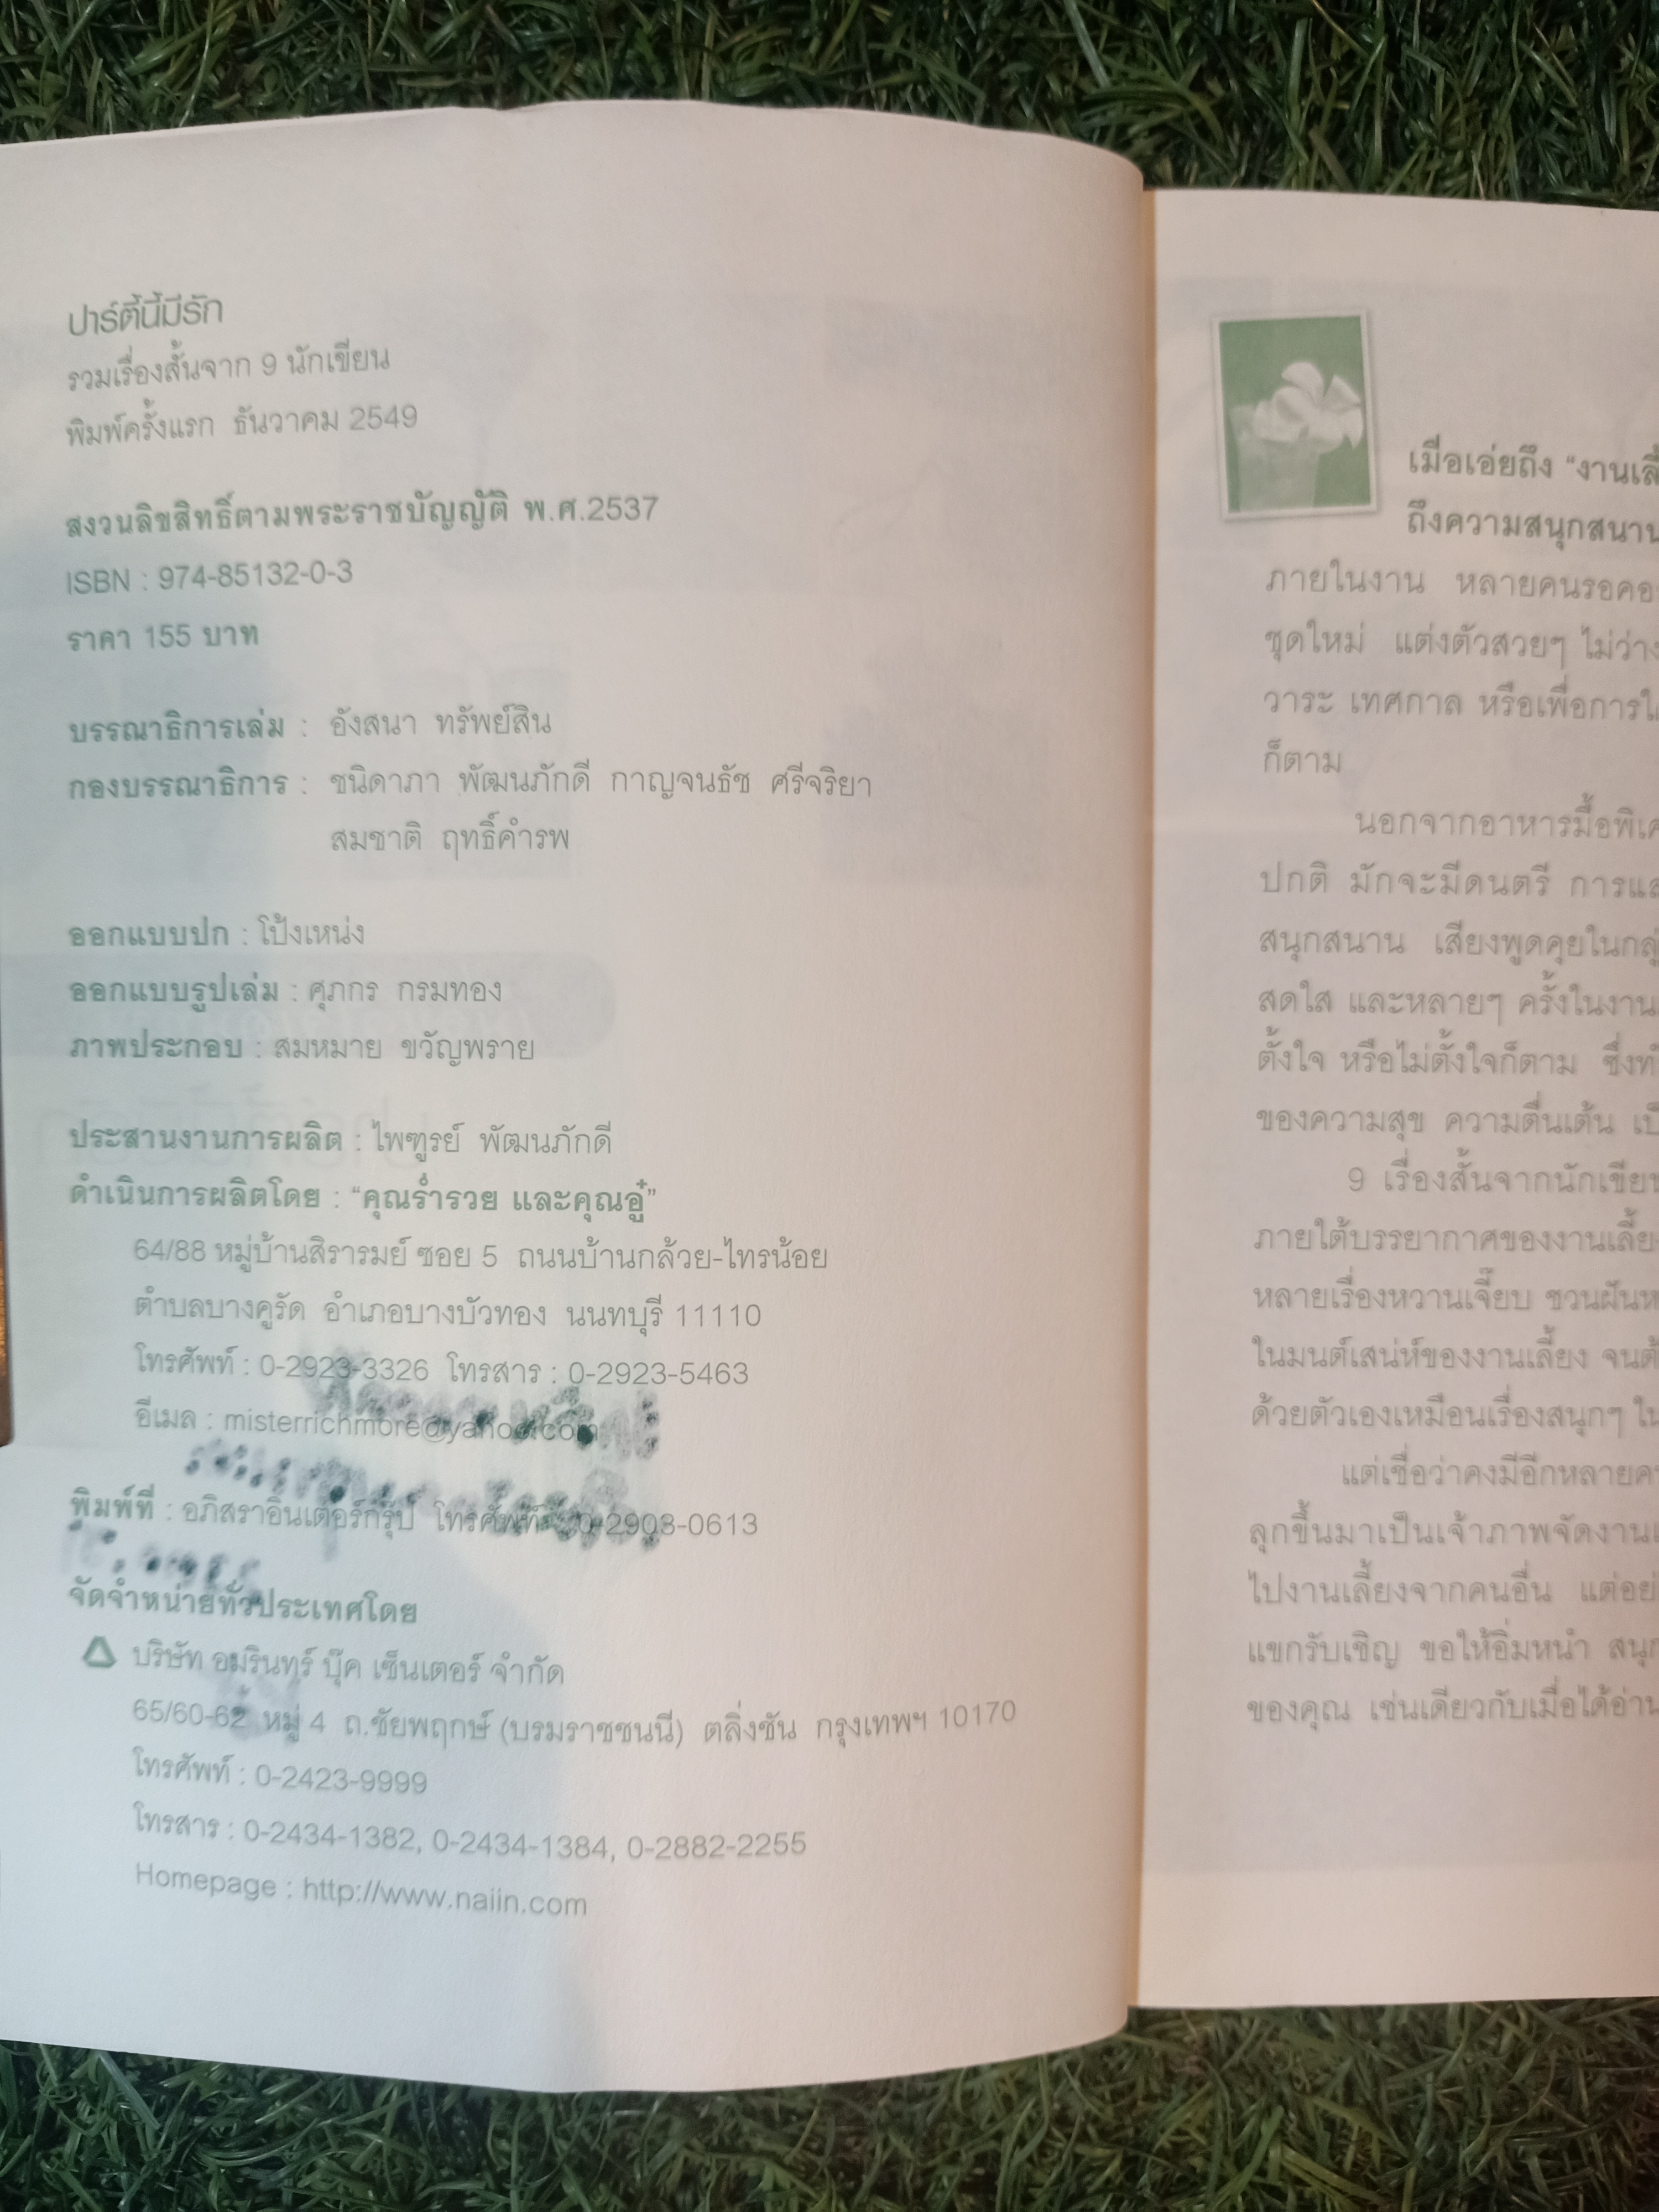 ปาร์ตี้นี้มีรัก
รวมเรื่องสั้นจาก 9 นักเขียน
พิมพ์ครั้งแรก ธันวาคม 2549
สงวนลิขสิทธิ์ตามพระราชบัญญัติ พ.ศ.2537
ISBN : 974-85132-0-3
ราคา 155 บาท
บรรณาธิการเล่ม : อังสนา ทรัพย์สิน
กองบรรณาธิการ : ชนิดาภา พัฒนภักดี กาญจนธัช ศรีจริยา
สมชาติ ฤทธิ์คำรพ
ออกแบบปก : โป้งเหน่ง
ออกแบบรูปเล่ม : ศุภกร กรมทอง
ภาพประกอบ : สมหมาย ขวัญพราย
ประสานงานการผลิต : ไพฑูรย์ พัฒนภักดี
ดำเนินการผลิตโดย : “คุณร่ำรวย และคุณอู๋”
64/88 หมู่บ้านสิรารมย์ ซอย 5 ถนนบ้านกล้วย-ไทรน้อย
ตำบลบางคูรัด อำเภอบางบัวทอง นนทบุรี 11110
โทรศัพท์ : 0-2923-3326 โทรสาร : 0-2923-5463
อีเมล : misterrichmore@yahoo.com
พิมพ์ที่ : อภิสราอินเตอร์กรุ๊ป โทรศัพท์ : 0-2903-0613
จัดจำหน่ายทั่วประเทศโดย
บริษัท อมรินทร์ บุ๊ค เซ็นเตอร์ จำกัด
65/60-62 หมู่ 4 ถ.ชัยพฤกษ์ (บรมราชชนนี) ตลิ่งชัน กรุงเทพฯ 10170
โทรศัพท์ : 0-2423-9999
โทรสาร : 0-2434-1382, 0-2434-1384, 0-2882-2255
Homepage : http://www.naiin.com
เมื่อเอ่ยถึง “งานเลี้
ถึงความสนุกสนาน
ภายในงาน หลายคนรอคอ
ชุดใหม่ แต่งตัวสวยๆ ไม่ว่า
วาระ เทศกาล หรือเพื่อการใ
ก็ตาม
นอกจากอาหารมื้อพิเศ
ปกติ มักจะมีดนตรี การแส
สนุกสนาน เสียงพูดคุยในกลุ่
สดใส และหลายๆ ครั้งในงาน
ตั้งใจ หรือไม่ตั้งใจก็ตาม ซึ่งท
ของความสุข ความตื่นเต้น เป็
9 เรื่องสั้นจากนักเขียน
ภายใต้บรรยากาศของงานเลี้ย
หลายเรื่องหวานเจี๊ยบ ชวนฝันห
ในมนต์เสน่ห์ของงานเลี้ยง จนต้
ด้วยตัวเองเหมือนเรื่องสนุกๆ ใน
แต่เชื่อว่าคงมีอีกหลายค
ลุกขึ้นมาเป็นเจ้าภาพจัดงานเ
ไปงานเลี้ยงจากคนอื่น แต่อย่
แขกรับเชิญ ขอให้อิ่มหนำ สนุก
ของคุณ เช่นเดียวกับเมื่อได้อ่าน